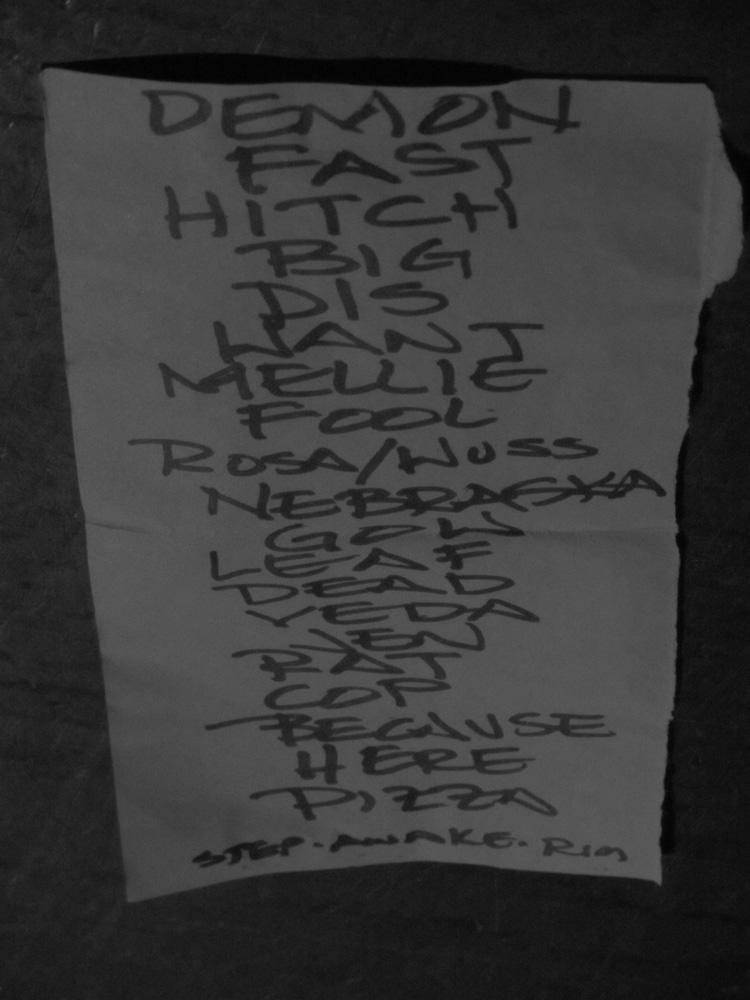 DEMON
FAST
HITCH
BIG
DIS
WANT
MELLIE
FOOL
ROSA/WUSS
NEBRASKA
GOW
LEAF
DEAD
VEDA
YEN
RAT
COP
BECAUSE
HERE
PIZZA
STEP. AWAKE. RIM